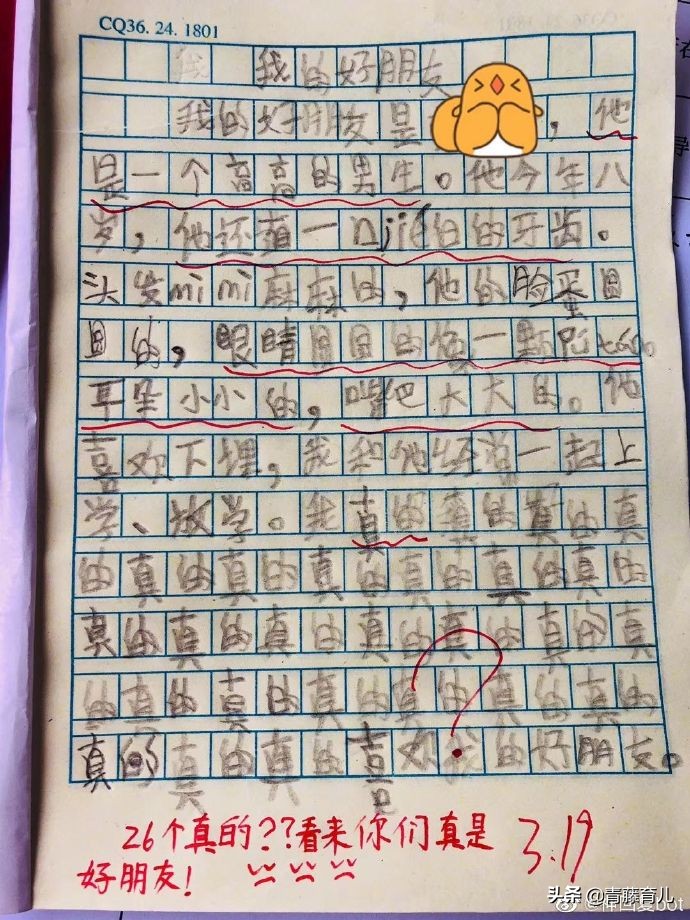 CQ36. 24. 1801
我的好朋友
我的好朋友是，他
是一个高高的男生。他今年八
岁，他还有一口jié白的牙齿。
头发mì mì麻麻的，他的脸蛋圆
圆的，眼睛圆圆的像一颗pú táo
耳朵小小的，嘴巴大大的。他
喜欢下棋，我和他经常一起上
学、放学。我真的真的真的真
的真的真的真的真的真的真的
真的真的真的真的真的真的真
的真的真的真的真的真的真的
真的真的真的喜欢我的好朋友。
?
26个真的??看来你们真是
好朋友!
3.19
头条 @青藤育儿